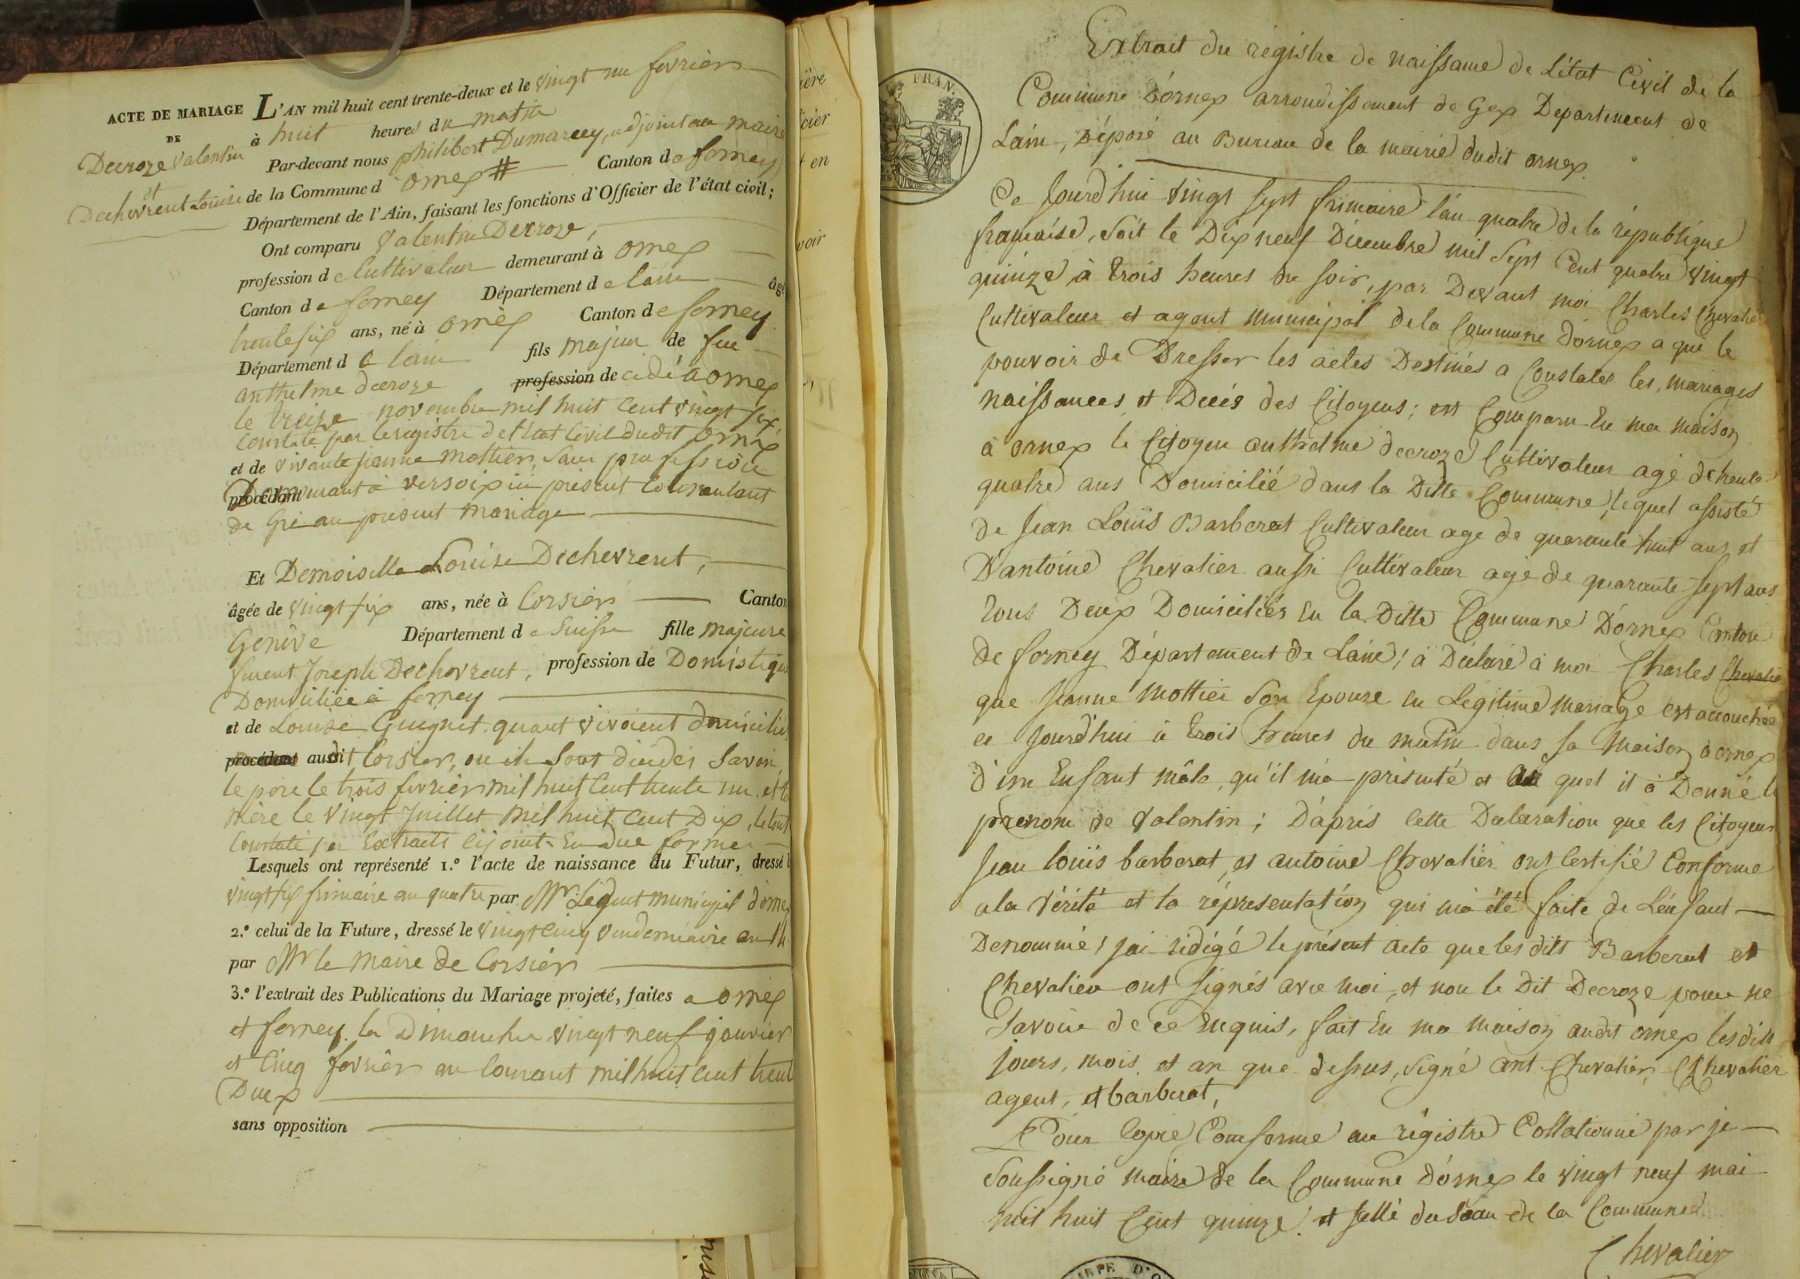 ACTE DE MARIAGE
DE
Decroze Valentin
et
Dechevrent Louise
L'AN mil huit cent trente-deux et le vingt un fevrier
à huit heures du matin
Par-devant nous philibert Dumarcey, adjoint au maire
de la Commune d'ornex # Canton de ferney
Département de l'Ain, faisant les fonctions d'Officier de l'état civil;
Ont comparu Valentin Decroze,
profession de Cultivateur demeurant à ornex
Canton de ferney Département de lain âgé
trente six ans, né à ornex Canton de ferney
Département de lain fils majeur de feu
anthelme decroze profession de cédé à ornex
le treize novembre mil huit cent vingt six,
constaté par le registre de l'Etat Civil dudit ornex
et de vivante jeanne mottier, sans profession
procédant Demeurant à versoix ici présent consentant
de Gré au présent mariage
Et Demoiselle Louise Dechevrent,
âgée de vingt six ans, née à Corsier Canton
Genève Département de Suisse fille majeure
feu Joseph Dechevrent, profession de Domestique
Domiciliée à ferney
et de Louise Guignet quant vivoient domiciliés
procédant audit Corsier, ou ils sont décédés Savoir
le pere le trois fevrier mil huit cent trente un, et la
mère le vingt Juillet mil huit cent Dix, le tout
constaté par Extraits cijoint En due forme
Lesquels ont représenté 1.º l'acte de naissance du Futur, dressé le
vingt six frimaire an quatre par Mr. L'agent municipal d'ornex
2.º celui de la Future, dressé le vingt cinq vendemiaire an
par Mr le maire de Corsier
3.º l'extrait des Publications du Mariage projeté, faites a ornex
et ferney le Dimanche vingt neuf janvier
et Cinq fevrier an courant mil huit cent trente
Deux
sans opposition
ière
cier
t en
voir
FRAN.
Extrait du régistre de naissance de L'état Civil de la
Commune D'ornex arrondissement de Gex Departement de
Lain, Déposé au Bureau de la mairie dudit ornex.
Ce Jourd'hui vingt sept frimaire l'an quatre de la république
française, soit le Dix neuf Décembre mil Sept Cent quatre vingt
quinze à trois heures du soir, par Devant moi Charles Chevalier
Cultivateur et agent municipal de la Commune D'ornex a qui le
pouvoir de Dresser les actes Destinés a Constater les mariages
naissances et Décès des Citoyens; est Comparu En ma maison
à ornex le Citoyen anthelme decroze Cultivateur agé de trente
quatre ans Domicilié dans la Ditte Commune, lequel assisté
de Jean Louis Barberat Cultivateur age de quarante huit ans, et
D'antoine Chevalier aussi Cultivateur age de quarante Sept ans
tous Deux Domiciliés En la Ditte Commune D'ornex Canton
de ferney Département de Lain; à Déclaré à moi Charles Chevalier
que Jeanne Mottier Son Epouse en Légitime mariage est accouchée
ce Jourd'hui à trois heures du matin dans sa Maison à ornex
d'un Enfant mâle, qu'il m'a présenté et au quel il à Donné le
prénom de Valentin; D'après Cette Declaration que les Citoyens
Jean louis barberat, et antoine Chevalier ont Certifié Conforme
a la vérité et la réprésentation qui m'a été faite de L'enfant
Denommé; jai rédigé le présent acte que les dits Barberat et
Chevalier ont signés avec moi, et non le Dit Decroze pour ne
Savoir de ce Enquis, fait En ma maison audit ornex les dits
jours, mois et an que dessus, signé ant. Chevalier, Ch Chevalier
agent, et barberat,
Pour Copie Conforme au régistre Collationné par je
Soussigné maire de la Commune D'ornex le vingt neuf mai
mil huit Cent quinze. et sellé du Seau de la Commune
Chevalier